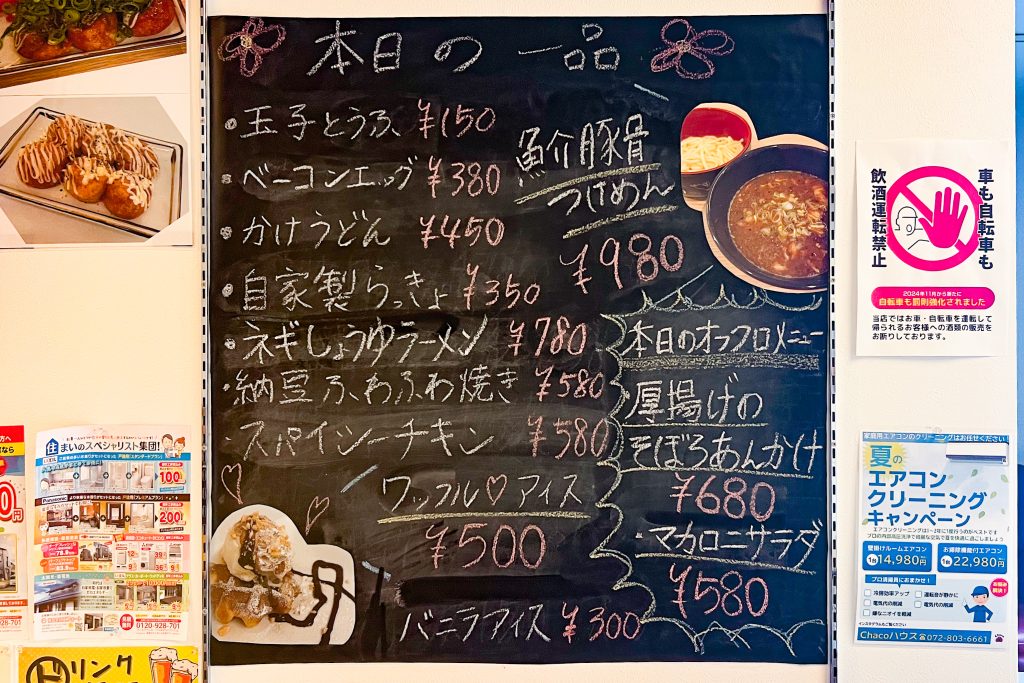 本日の一品
・玉子とうふ ¥150
・ベーコンエッグ ¥380
・かけうどん ¥450
・自家製らっきょ ¥350
・ネギしょうゆラーメン ¥780
・納豆ふわふわ焼き ¥580
・スパイシーチキン ¥580
ワッフル♡アイス
¥500
バニラアイス ¥300
魚介豚骨
つけめん
¥980
本日のオフロメニュー
厚揚げの
そぼろあんかけ
¥680
・マカロニサラダ
¥580
車も自転車も
飲酒運転禁止
2024年11月から新たに
自転車も罰則強化されました
当店ではお車・自転車を運転して
帰られるお客様への酒類の販売を
お断りしております。
住まいのスペシャリスト集団!
Panasonic
0120-928-701
ドリンク
家庭用エアコンのクリーニングはお任せください
夏の
エアコン
クリーニング
キャンペーン
壁掛けルームエアコン
1台 14,980円
お掃除機能付エアコン
1台 22,980円
プロ清掃員におまかせ!
冷房効率アップ
運転音が静かに
電気代の削減
電気代の削減
嫌なニオイを削減
Chacoハウス ☎072-803-6661